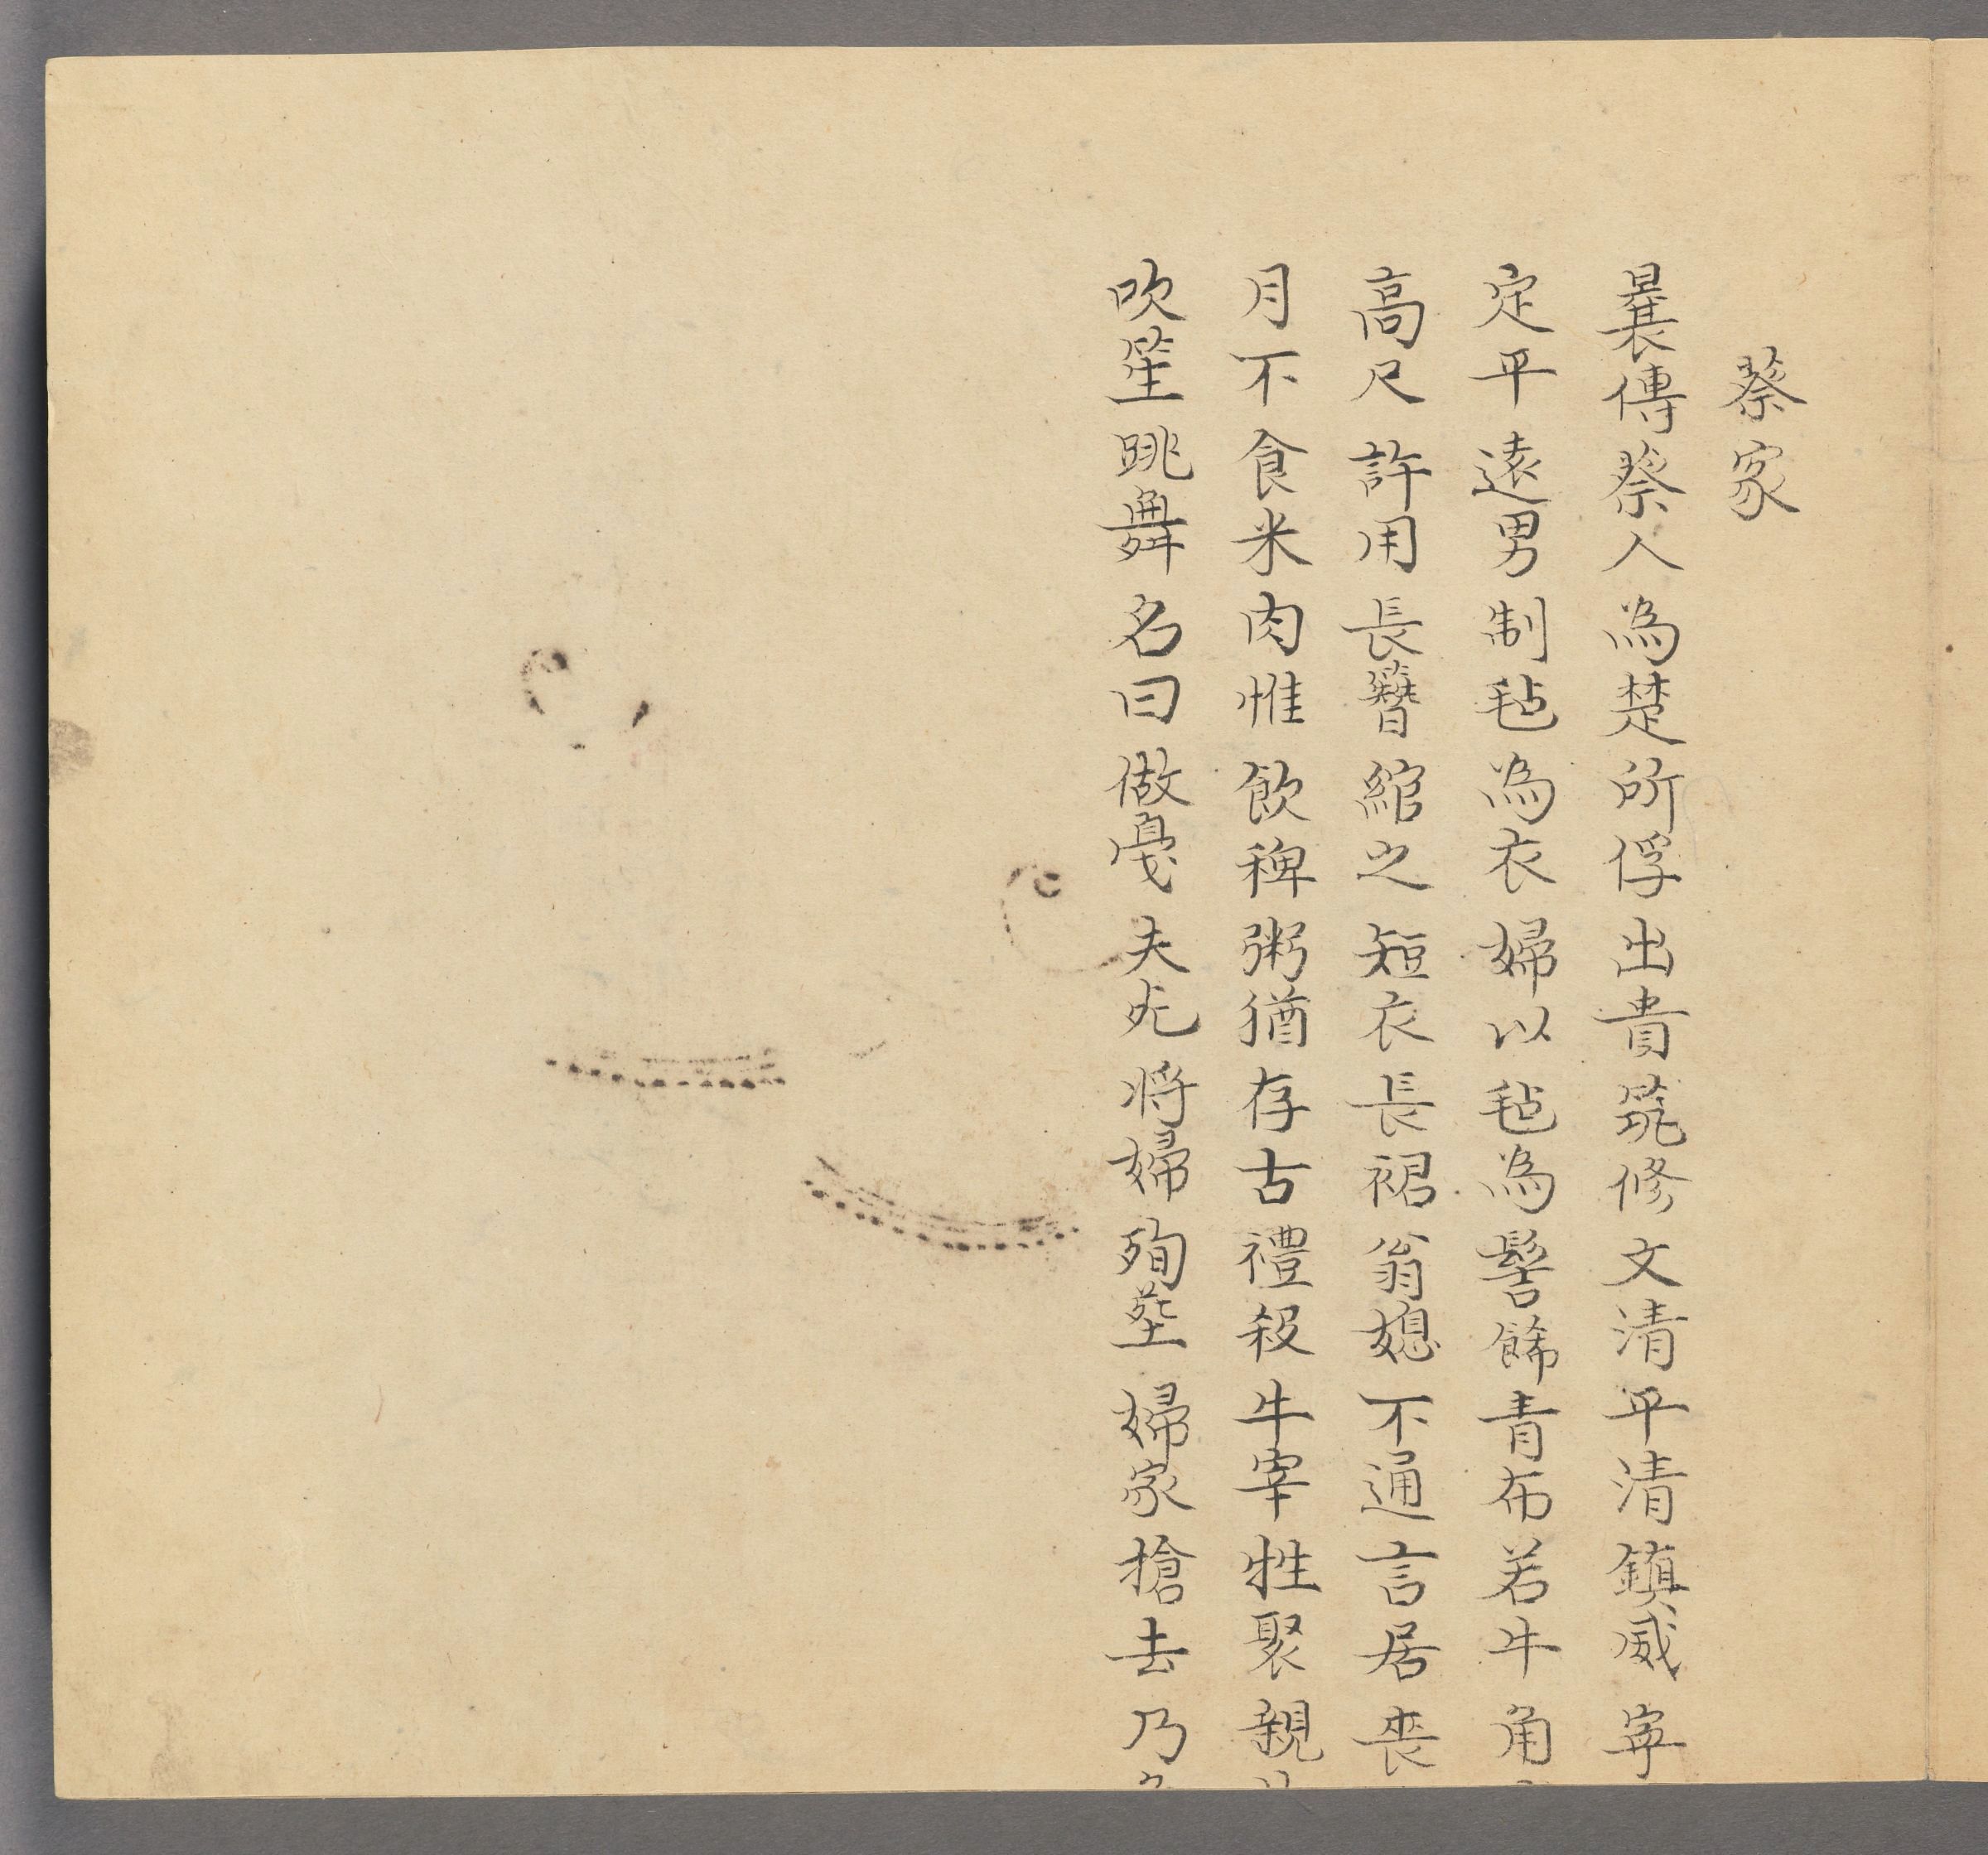 蔡家
曩傳蔡人為楚所俘出貴筑修文清平清鎮威寧
定平遠男制毡為衣婦以毡為髻餙青布若牛角
高尺許用長簪綰之短衣長裙翁媳不通言居喪
月不食米肉惟飲稗粥猶存古禮殺牛宰牲聚親
吹笙跳舞名曰做戞夫死将婦殉塟婦家搶去乃